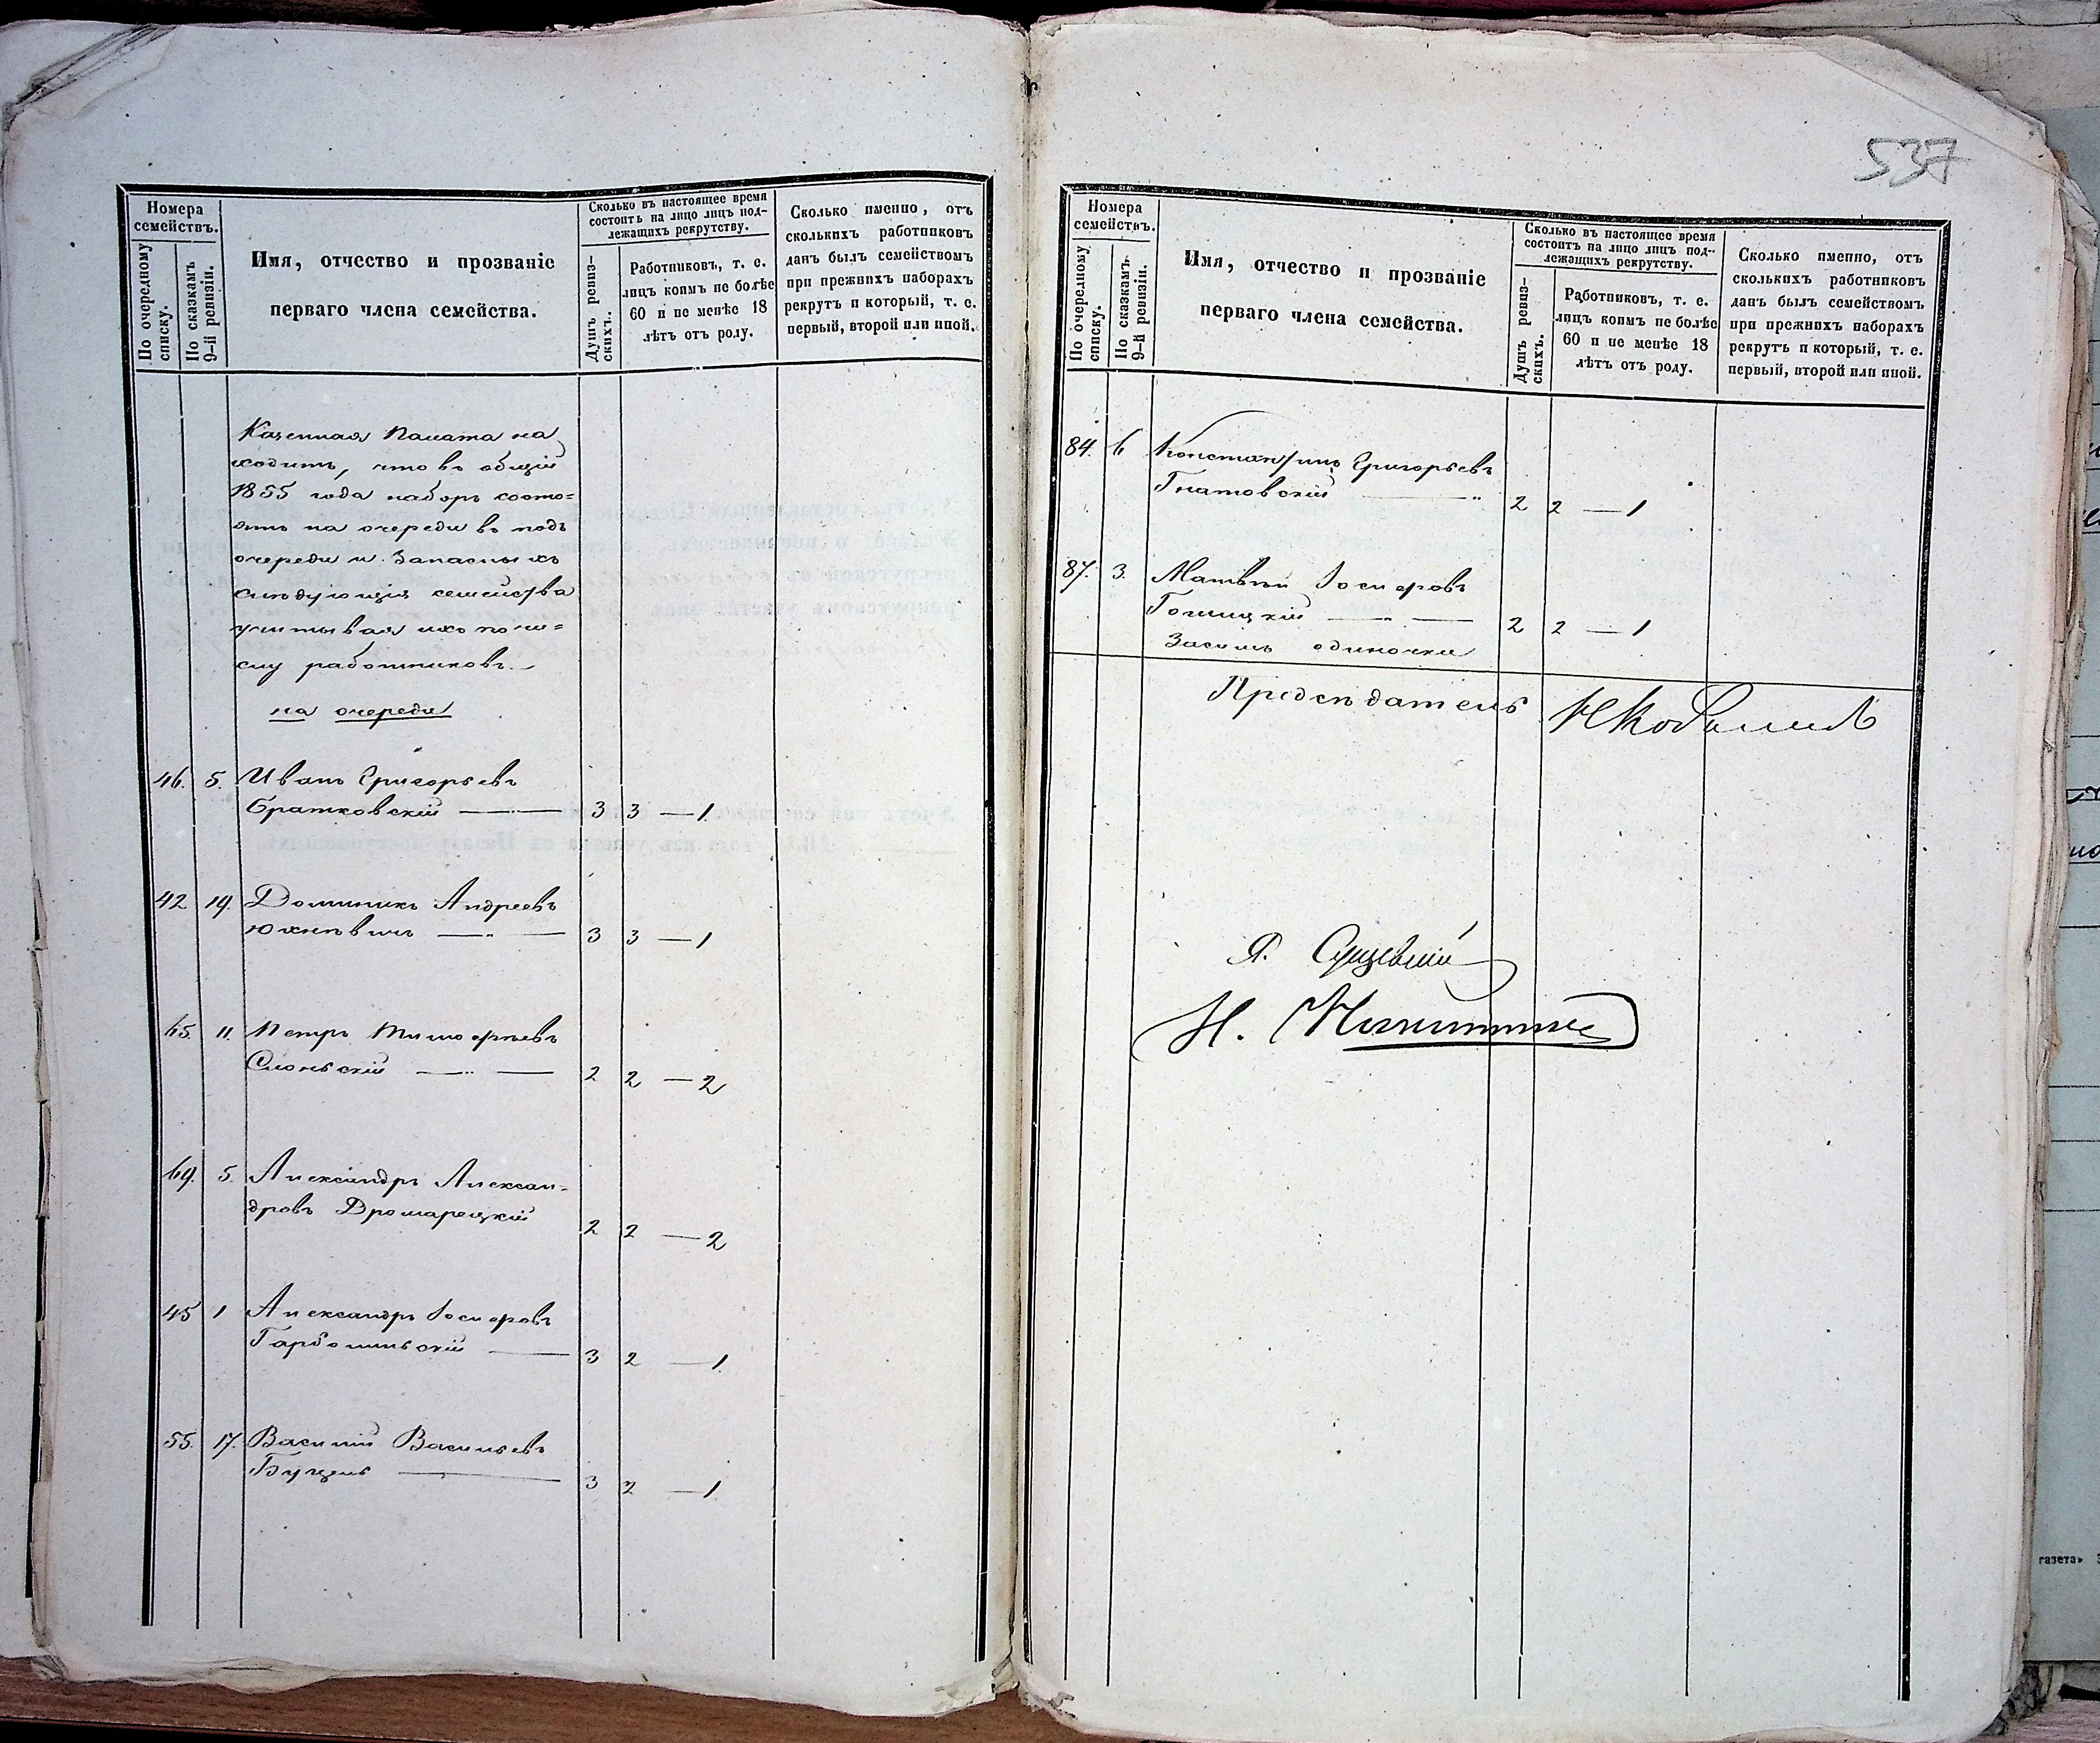 Номера
семействъ.
По очередному
списку.
По сказкамъ
9-й ревизіи.
Имя, отчество и прозваніе
перваго члена семейства.
Сколько въ настоящее время
состоитъ на лицо лицъ под-
лежащихъ рекрутству.
Душъ ревиз-
скихъ.
Работниковъ, т. е.
лицъ коимъ не болѣе
60 и не менѣе 18
лѣтъ отъ роду.
Сколько именно, отъ
сколькихъ работниковъ
данъ былъ семействомъ
при прежнихъ наборахъ
рекрутъ и который, т. е.
первый, второй или иной.
Казенная Палата на
ходитъ, что въ общій
1855 года наборъ состо=
ятъ на очереди въ подъ
очереди и запасныхъ
слѣдующія семейства
учитывая ихъ по чи=
слу работниковъ.
на очереди
46. 5. Иванъ Григорьевъ
Братковскій 3 3 — 1
42 19. Доминикъ Андреевъ
Юхневичъ 3 3 — 1
65. 11. Петръ Тимофѣевъ
Слоньскій 2 2 — 2
69. 5. Александръ Алексан-
дровъ Дромарецкій 2 2 — 2
45 1 Александръ Іосифовъ
3 2 — 1
55. 17. Василій Васильевъ
Буцень 3 2 — 1
537
Номера
семействъ.
По очередному
списку.
По сказкамъ
9-й ревизіи.
Имя, отчество и прозваніе
перваго члена семейства.
Сколько въ настоящее время
состоитъ на лицо лицъ под-
лежащихъ рекрутству.
Душъ ревиз-
скихъ.
Работниковъ, т. е.
лицъ коимъ не болѣе
60 и не менѣе 18
лѣтъ отъ роду.
Сколько именно, отъ
сколькихъ работниковъ
данъ былъ семействомъ
при прежнихъ наборахъ
рекрутъ и который, т. е.
первый, второй или иной.
84. 6 Константинъ Григорьевъ
Гнатовскій 2 2 — 1
87. 3. Матвѣй Іосифовъ
2 2 — 1
Засимъ одиночки
Предсѣдатель
газета»